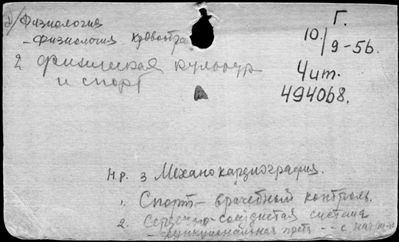 Физиология
- физиология кровообра
2 физическая культур
и спорт
Г.
10/9-56.
Чит.
494068.
нр. 3 Механокардиография.
1. Спорт - врачебный контроль.
2. Сердечно-сосудистая система
- функциональная